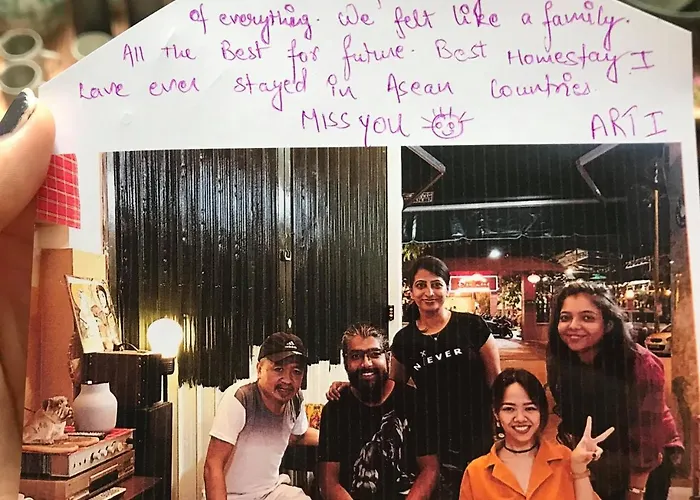 of everything. We felt like a family.
All the Best for future. Best Homestay I
have ever stayed in Asean Countries.
MISS YOU ARTI
NEVER